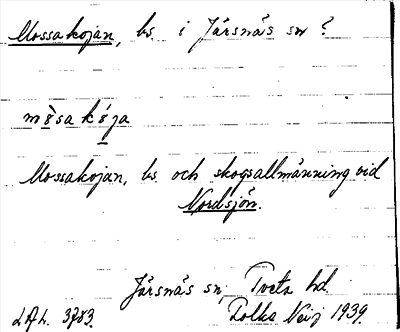 Mossakojan, bs. i Järsnäs sn?
mòsa kója
Mossakojan, bs och skogsallmänning vid
Nordsjön.
Järsnäs sn, Tveta hd.
LAL. 3783. 1939.